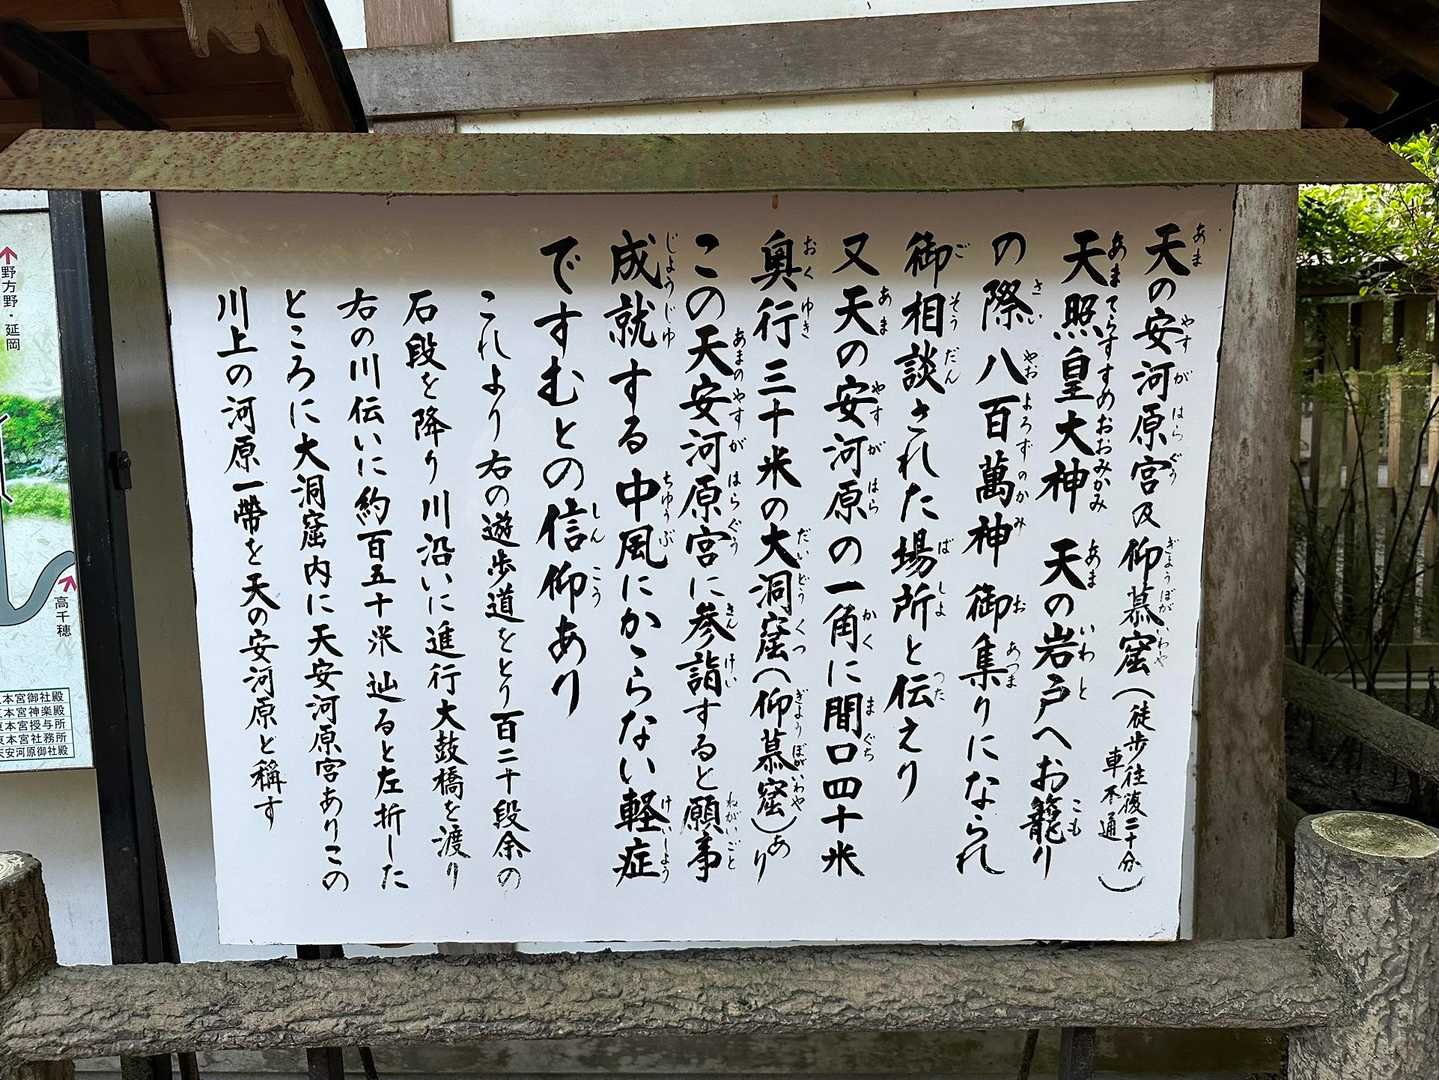 天の安河原宮及仰慕窟(徒歩往復二十分 車不通)
天照皇大神 天の岩戸へお籠り
の際 八百萬神 御集りになられ
御相談された場所と伝えり
又天の安河原の一角に間口四十米
奥行三十米の大洞窟(仰慕窟)あり
この天安河原宮に参詣すると願事
成就する 中風にかゝらない 軽症
ですむとの信仰あり
これより右の遊歩道をとり百二十段余の
石段を降り川沿いに進行大鼓橋を渡り
右の川伝いに約百五十米辿ると左折した
ところに大洞窟内に天安河原宮ありこの
川上の河原一帶を天の安河原と稱す
野方野・延岡
高千穂
本宮御社殿
本宮神楽殿
東本宮授与所
東本宮社務所
天安河原御社殿